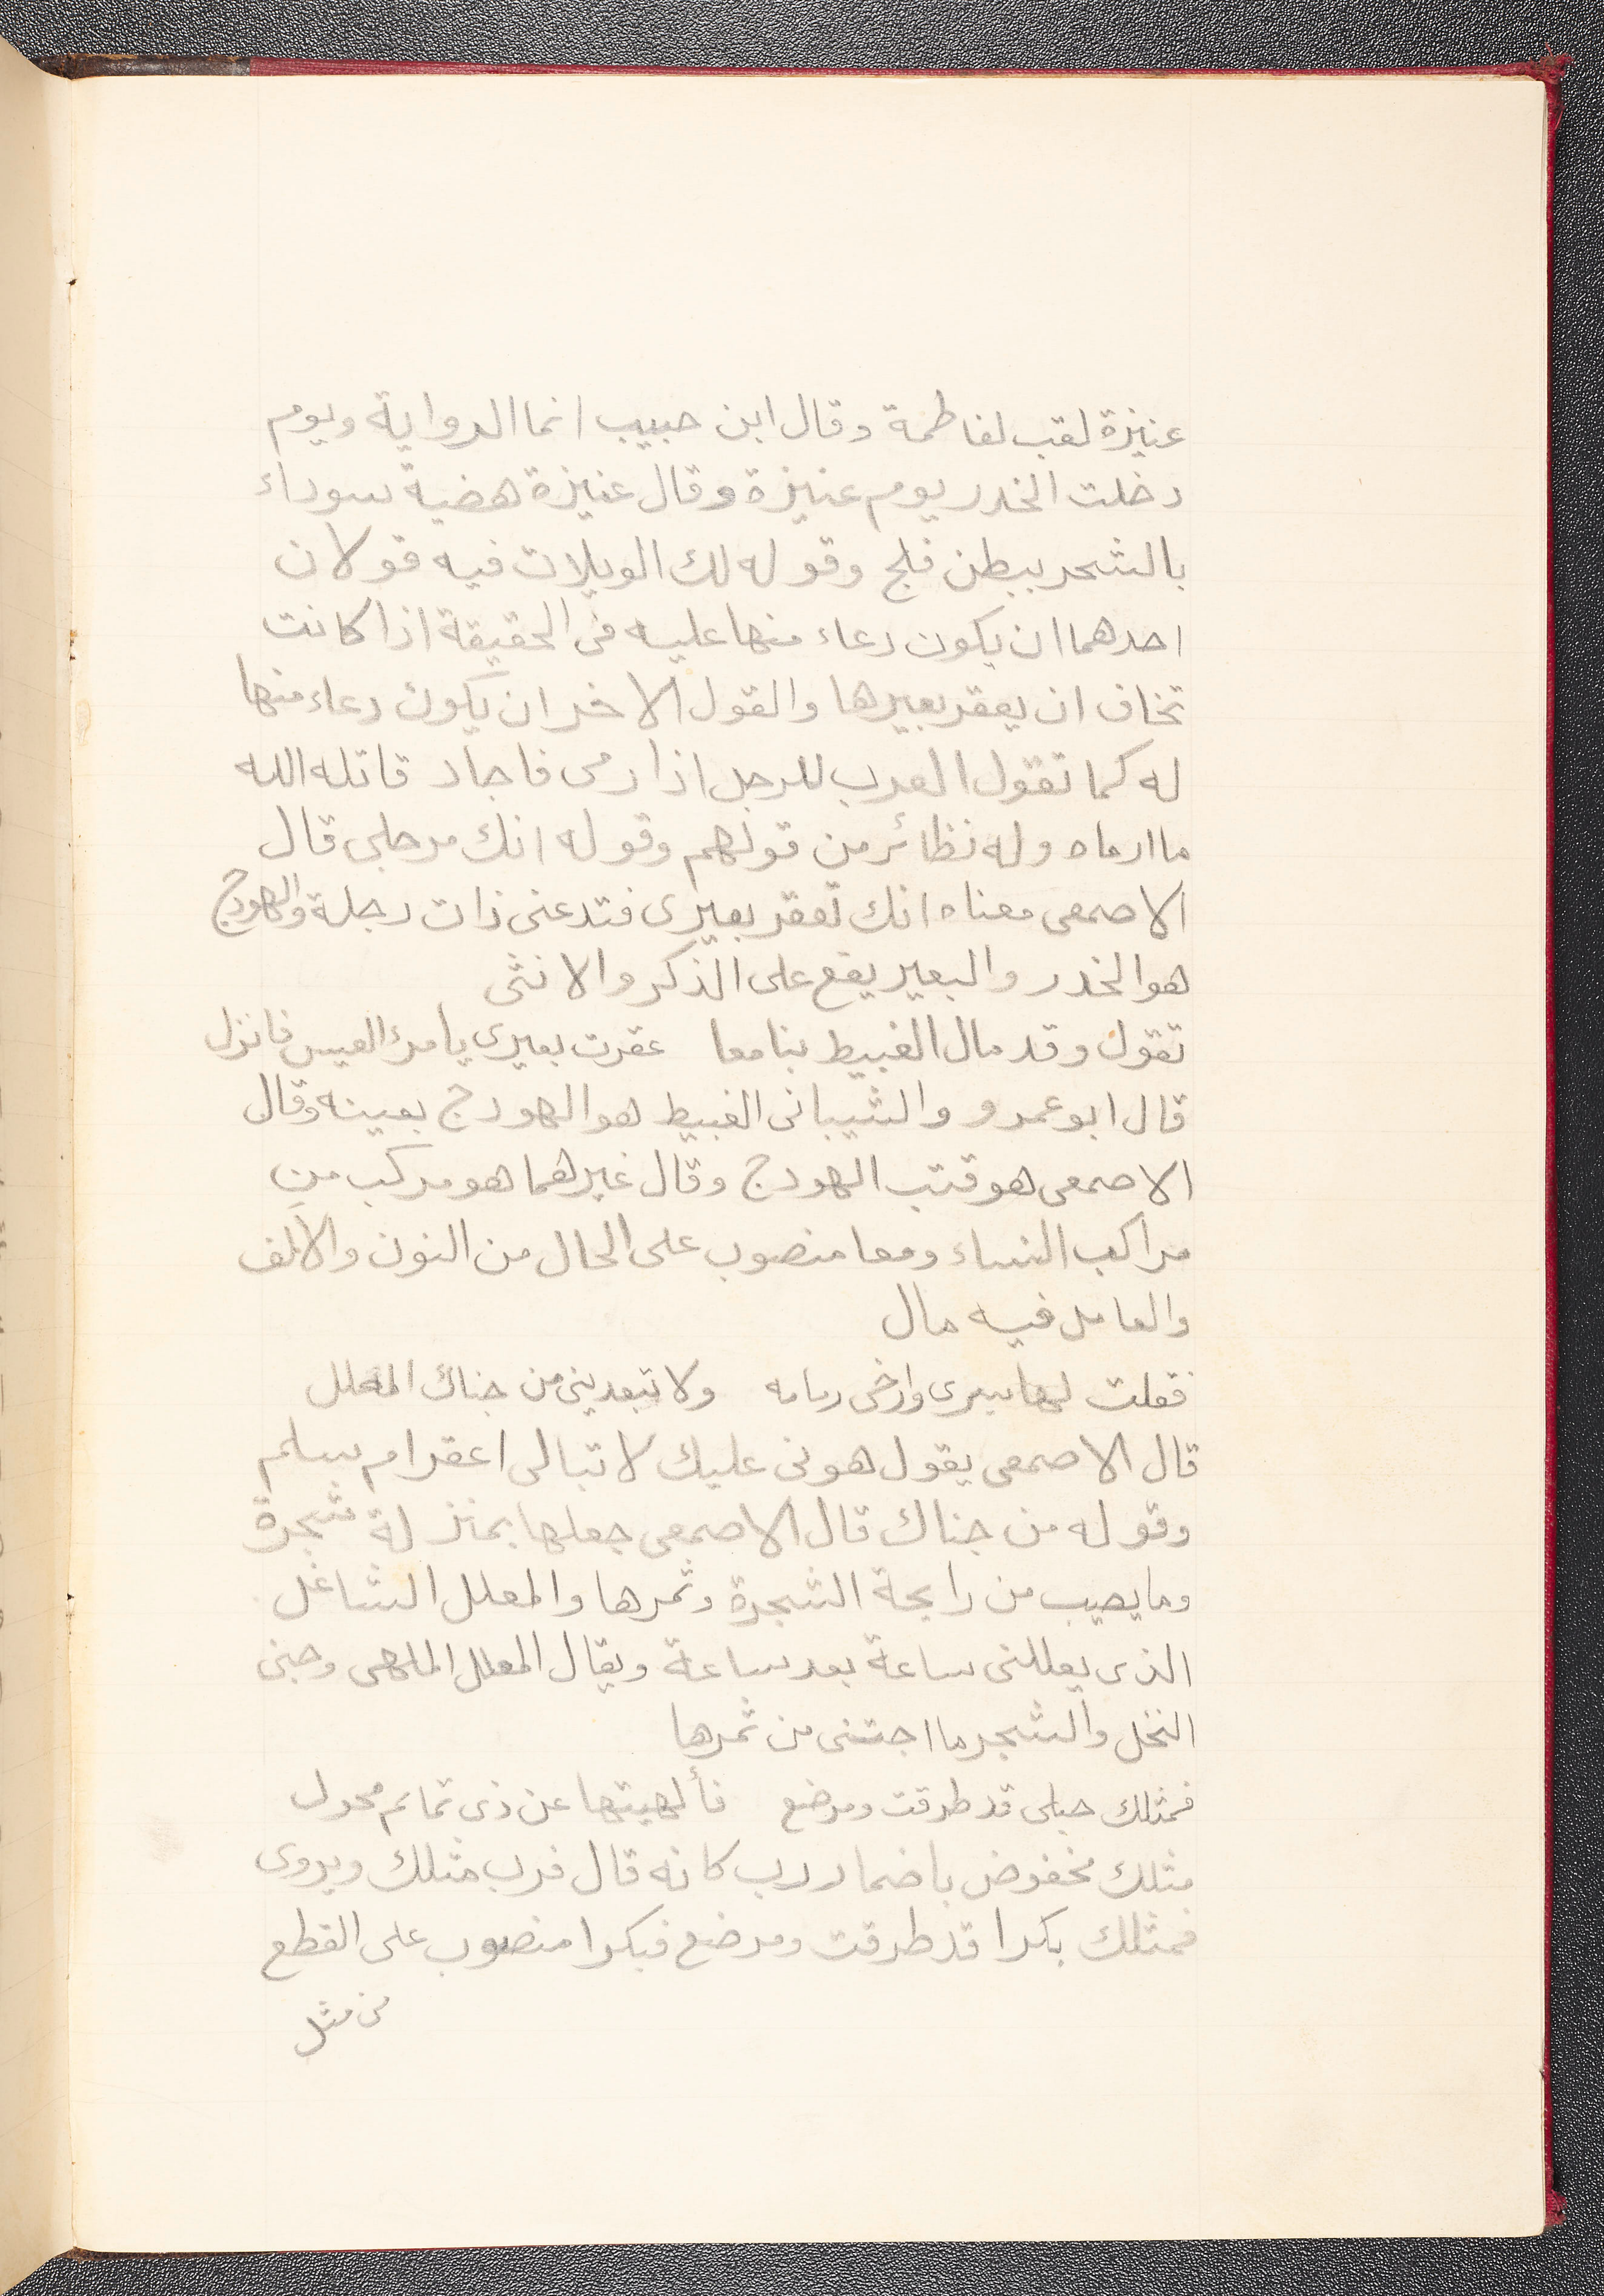 عنيزة لقب لفاطمة وقال ابن حبيب انما الرواية ويوم
دخلت الخدر يوم عنيزة وقال عنيزة هضبة سوداء
بالشحر ببطن فلج وقوله لك الويلات فيه قولان
احدهما ان يكون دعاء منها عليه فى الحقيقة اذا كانت
تخاف ان يعقر بعيرها والقول الاخر ان يكون دعاء منها
له كما تقول العرب للرجل اذا رمى فاجاد قاتله الله
ما ارماه وله نظائر من قولهم وقوله انك مرجلى قال
الاصمعى معناه انك تعقر بعيرى فتدعنى ذات رجلة والهودج
هو الخدر والبعير يقع على الذكر والانثى
تقول وقد مال الغبيط بنا معا عقرت بعيرى يامرئ القيس فانزل
قال ابو عمرو والشيبانى الغبيط هو الهودج بعينه وقال
الاصمعى هو قتب الهودج وقال غيرهما هو مركب من
مراكب النساء ومعا منصوب على الحال من النون والالف
والعامل فيه مال
فقلت لها سيرى وارخى زمامه ولا تبعدينى من جناك المعلل
قال الاصمعى يقول هونى عليك لا تبالى اعقر ام سلم
وقوله من جناك قال الاصمعى جعلها بمنزلة شجرة
وما يصيب من رايحة الشجرة وثمرها والمعلل الشاغل
الذى يعللنى ساعة بعد ساعة ويقال المعلل الملهى وجنى
النخل والشجر ما اجتنى من ثمرها
فمثلك حبلى قد طرقت ومرضع فألهيتها عن ذى تمايم محول
مثلك مخفوض باضمار رب كانه قال فرب مثلك ويروى
فمثلك بكرا قد طرقت ومرضع فبكرا منصوب على القطع
من مثل